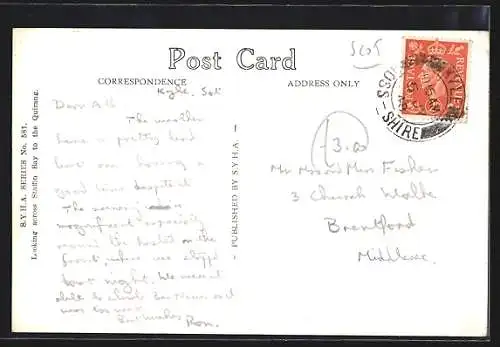 Post Card
SCOT
CORRESPONDENCE
ADDRESS ONLY
S.Y.H.A. SERIES No. 581.
Looking across Staffin Bay to the Quirang.
PUBLISHED BY S.Y.H.A.
POSTAGE
REVENUE
ROSS
SHIRE
Kyle. Sat
Dear All
The weather
here is pretty bad
but am having a
good time despite it
The scenery is
magnificent especially
round the hostel on the
front, where we stayed
last night. We weren't
able to climb Ben Nevis and
was too wet
Best wishes
Ron.
3.00
Mr Mrs and Miss Fisher
3 Church Walk
Brentford
Middlesex.